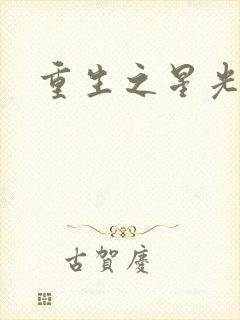 重生之星光
古賀慶